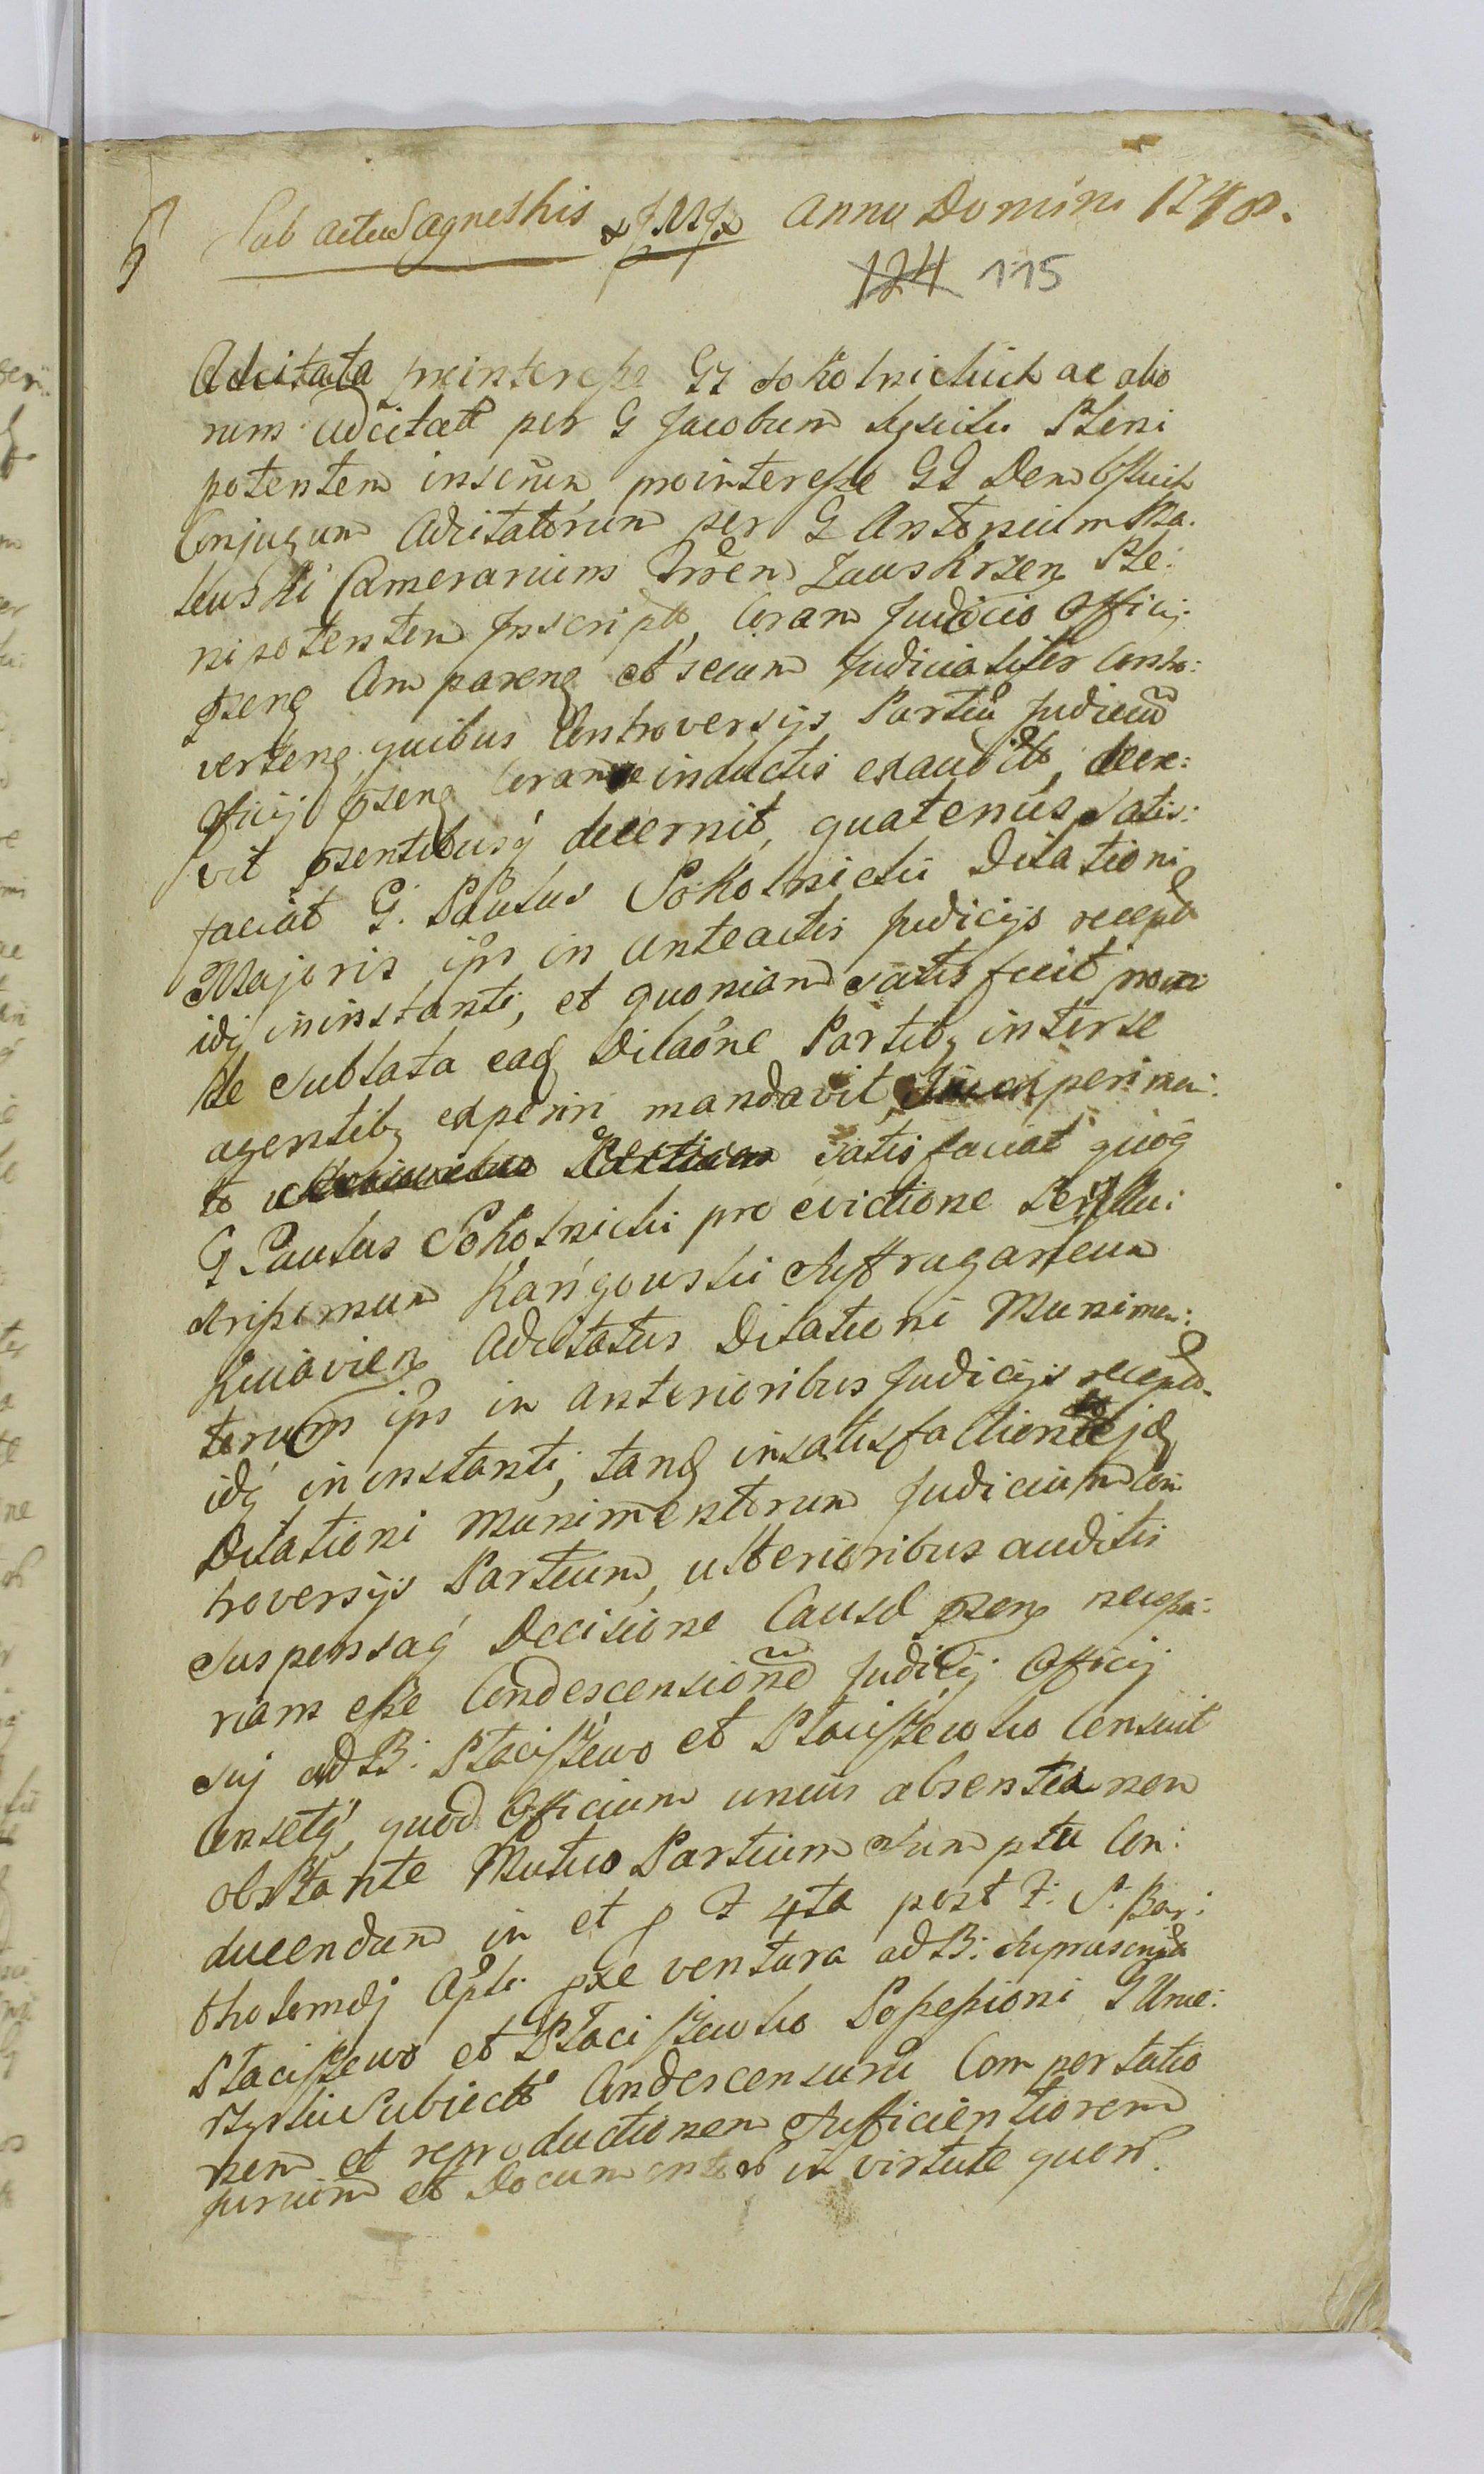 Sub actu Sagneskis Anno Domini 1740.
124 115
Adcitata prointeresse GG Sokolnickich ac alio
rum adcitat per G Jacobum Pleni
potentem inscrün prointeresse GG Dembskich
Conjugum Adcitatorum per G Antonium Ma.
Camerarium Trren Zauskrzen Ple:
nipotentem Inscript, Coram Judicio Officij
pzeng Compareng et secum Judicialiter Contro:
verteng, quibus Controversijs Partiu Judiciu
Officij pzeng Coram inductis exaudit, decre:
vit pzentibusq decernit, quatenus satis:
faciat G. Paulus Sokolnicki Dilationi
Majoris ips in anteactis Judicijs recept
idq ininstanti, et quoniam satis fecit proin
de sublata eaq Dilaone Partibq interse
agentibq experiri mandavit, experimen:
to satisfaciat quoq
G Paulus Sokolnicki pro evictione Perillu:
strissimum Suffraganeum
Kuiavien Adcitatus Dilationi Munimen:
torum ips in anterioribus Judicijs recept.
idq in instanti, tandq insatisfactione ejdq
Dilationi Munimentorum Judicium Con
troversijs Partium, ulterioribus auditis
suspensaq Decisione Causæ pzeng necessa:
riam esse Condescensione Judicij Officij
sui ad B: Staciszewo et Staciszewko Censuit
Censetq, quod Officium unius absentia non
obstante Mutuo Partium sumptu Con:
ducendum in et p F 4ta post F: S. Bar:
tholomæj Apli pxe ventura ad B: suprascripta
Staciszewo et Staciszewko Possessioni G
Subiecta Condescensuru Comportatio
nem et reproductionem sufficientiorem
Jurium et Documentor in virtute quor